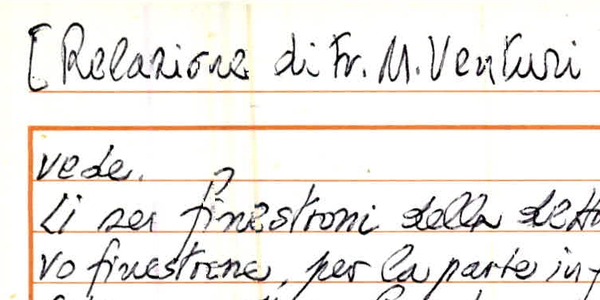 [Relazione di Fr. M. Venturi
vede.
Li sei finestroni della detta
vo finestrone, per la parte in